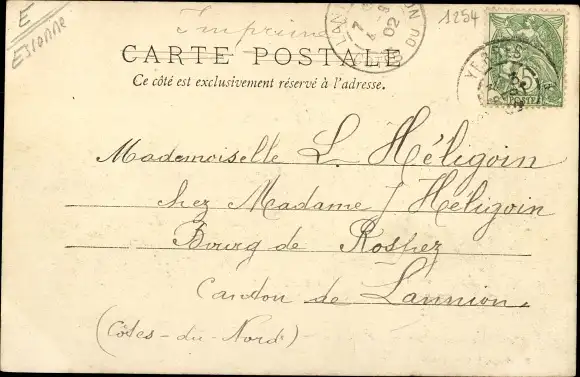 E
Essonne
Imprimé
1254
LANNION
02
CARTE POSTALE
Ce côté est exclusivement réservé à l'adresse.
YERRES
5
POSTES
Mademoiselle L. Héligoin
chez Madame Héligoin
Bourg de Rospez
Canton de Lannion.
(Côtes-du-Nord)